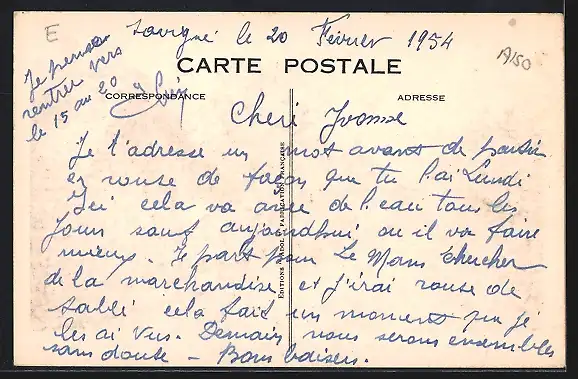 E
Savigné le 20 Février 1954
A150
Je pense
rentrer vers
le 15 au 20
CARTE POSTALE
CORRESPONDANCE
ADRESSE
Cheri Yvonne
Je t'adresse un mot avant de partir
en route de façon que tu l'ai Lundi
Ici cela va avec de l'eau tous les
jours sauf aujourdhui ou il va faire
mieux. Je part pour Le Mans chercher
de la marchandise et j'irai route de
sablé cela fait un moment que je
les ai vus. Demain nous serons ensembles
sans doute - Bons baisers.
FABRICATION FRANÇAISE